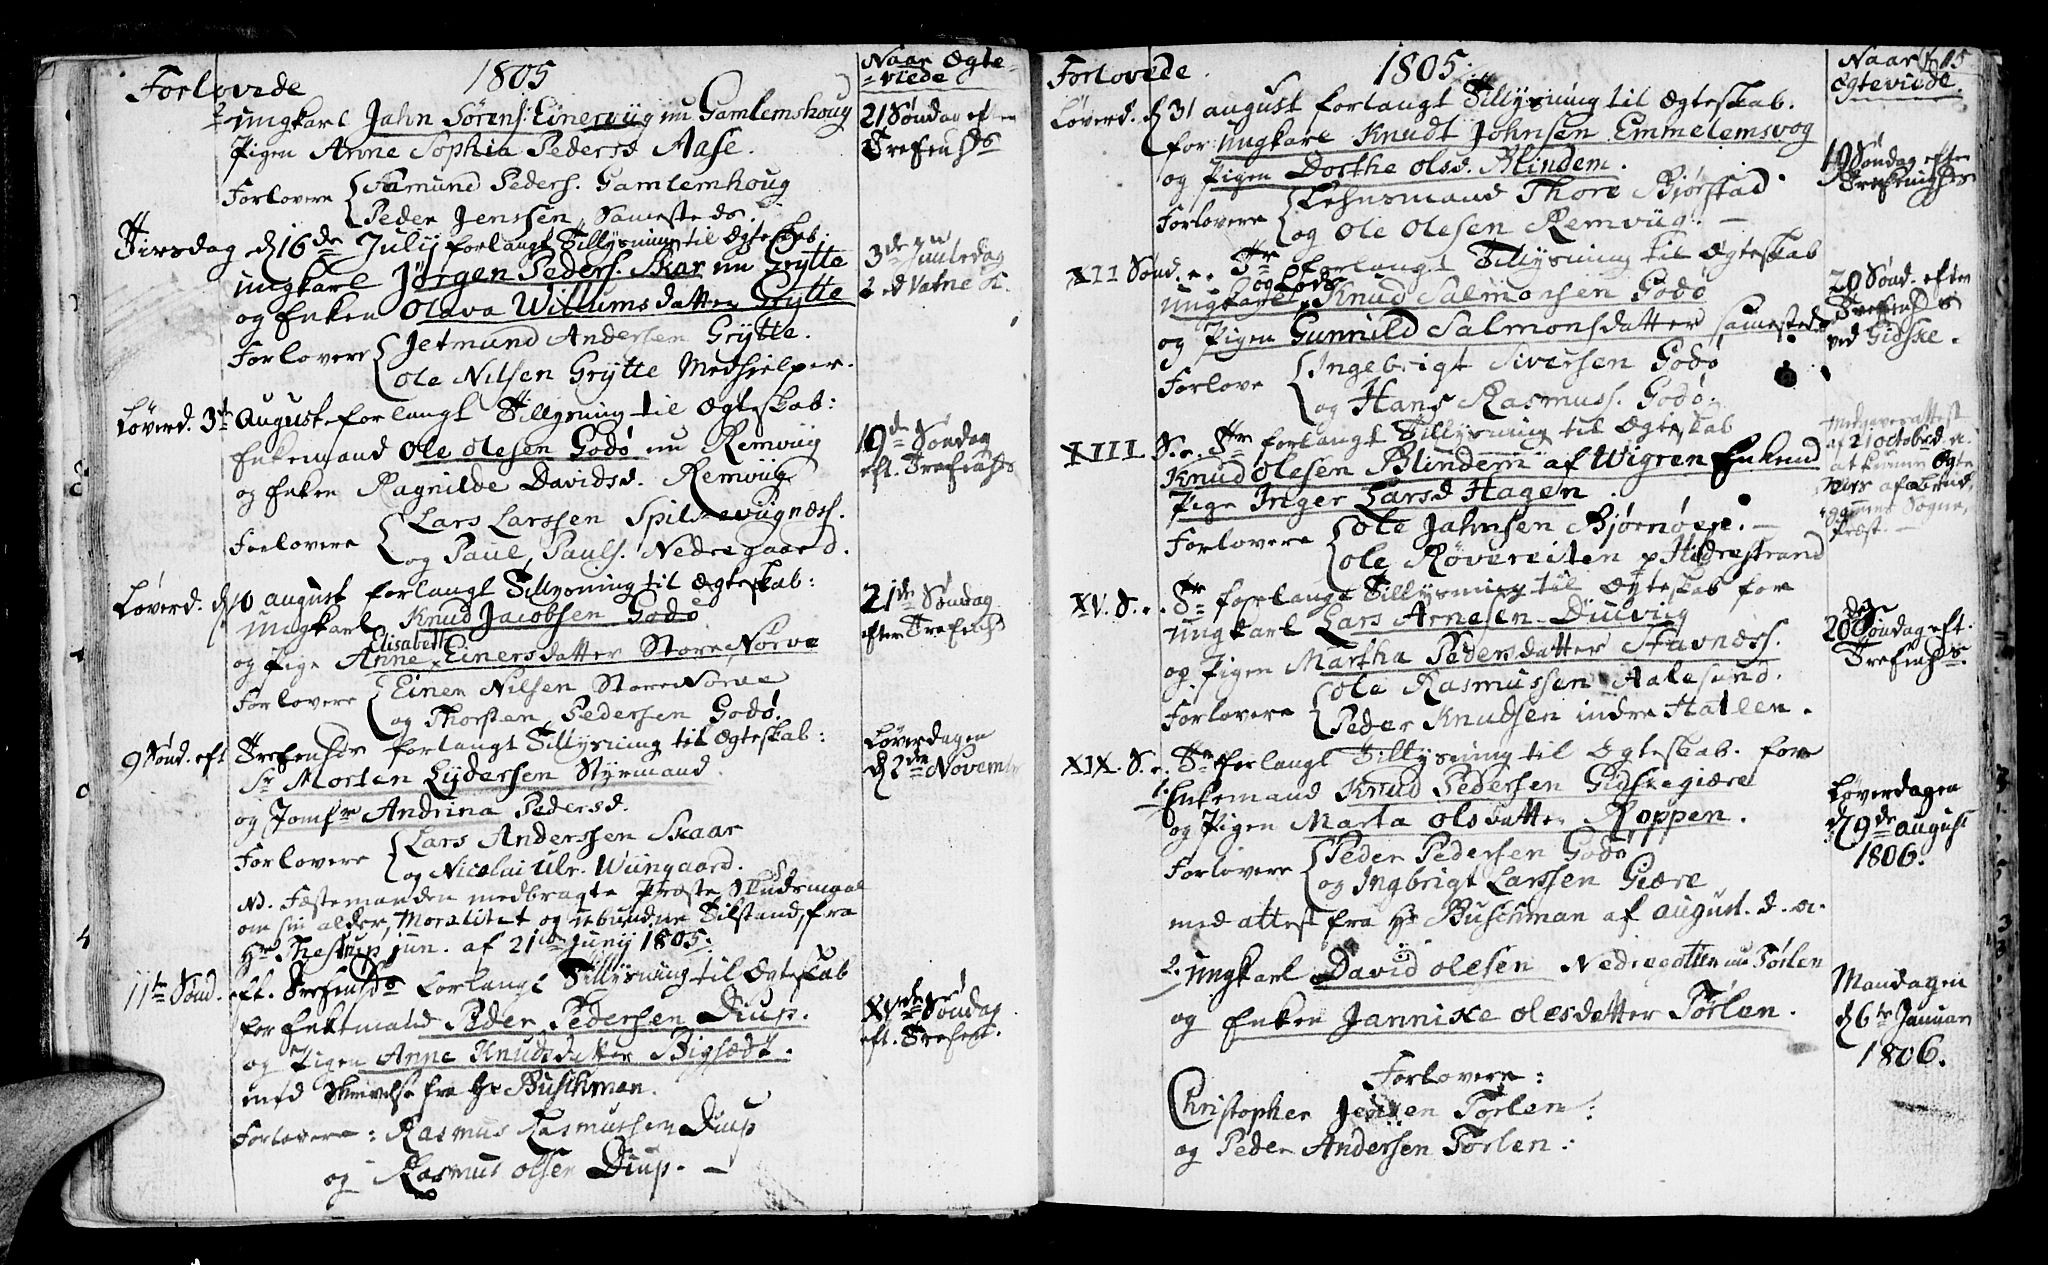 Forlovede 1805 Naar Ægte-
viede
2 ungkarl Jahn Sørens: Einervüg nu Gamlemshoug
Pigen Anne Sophia Pedersd Aase.
Forlovere Amund Peders. Gamlemhoug
Peder Jenssen, Samesteds.
21 Søndag efter
Trefighds
Tirsdag d 16de Julij forlangt Tillysning til Ægteskab:
ungkarl Jørgen Peders. Skar nu Grÿtte
og Enken Olava Willumsdatter Grÿtte
Forlovere Jetmund Andersen Grÿtte.
Ole Nilsen Grÿtte Medhielper.
3de Juuledag
ved Vatne K.
Løverd. 3de August forlangt Tillysning til Ægteskab:
Enkemand Ole Olesen Godø nu Remvüg
og Enken Ragnilde Davidsd. Remvüg
Forlovere Lars Larssen Spilkevügnæss.
og Paul Pauls. Nedregaard.
19de Søndag
eft. Trefighds
Løverd. d 10 august forlangt Tillysning til Ægteskab:
Ungkarl Knud Jacobsen Godø
Elisabeth
og Pige Anne Einersdatter Store Nørve
Forlovere Einer Nilsen Store Nørve
og Thorsten Pedersen Godø.
21de Søndag
efter Trefighds
9 Sønd. eft Trefighds forlangt Tillysning til Ægteskab:
Sr Morten Lÿdersen Stÿrmand.
og Jomfr Andrina Pedersd.
Forlovere Lars Anderssen Skaar
og Nicolai Ulr. Wüngaard.
Løverdagen
d 2de November
NB. Fæstemanden medbragte Præste Skudsmaal
om sin alder, Moralitet og ubundne Tilstand, fra
Hr Thestrup jun. af 21de Junij 1805.
11te Sønd. eft. Trefighds forlangt Tillysning til Ægteskab
for Enkemand Peder Pedersen Diup.
og Pigen Anne Knudsdatter Bigsædt.
med Skrivelse fra Hr Buschman.
Forlovere: Rasmus Rasmussen Diup
og Rasmus Olsen Diup. —
XVde Søndag
eft. Trefigh.
Forlovede. 1805. Naar
Ægteviede.
15
Løverd. d 31 august forlangt Tillysning til Ægteskab.
for ungkarl Knudt Johnsen Emmelemsvog
og Pigen Dorthe Olsd. Blindem.
Forlovere Lehnsmand Thore Bjørstad
og Ole Olesen Remvüg. —
19 Søndag efter
Trefighds
XII Sønd. e. Tr forlangt Tillysning til Ægteskab
og Lods
Ungkarl Knud Salmonsen Godø
og Pigen Gunnild Salmonsdatter samesteds
Forlove Ingebrigt Siversen Godø
og Hans Rasmuss. Godø.
20 Sønd. efter
Trefighds
ved Gidske.
XIII. S. e. Tr forlangt Tillysning til Ægteskab
Knud Olesen Blindem af Wigren Enkemd
Pige Inger Larsd Hagen
Forlovere Ole Jahnsen Bjørnøen. —
Ole Røvereiten p Hidrestrand
Medgaver attest
af 21 October d. a.
at kunne Ægte
vies af
Sogne
Præst. —
XV. S. e. Tr forlangt Tillysning til Ægteskab for
Ungkarl Lars Arnesen Duevüg
og Pigen Martha Pedersdatter Stavnæss.
Forlovere Ole Rasmussen Aalesund.
Peder Knudsen indre Hatlen.
20de Søndag eft.
Trefighds.
XIX. S. e. Tr forlangt Tillysning til Ægteskab. for
1. Enkemand Knud Pedersen Gidskegiære
og Pigen Marta Olsdatter Roppen.
Forlovere Peder Pedersen Godø
og Ingbrigt Larssen Giære
med attest fra Hr Buschman af August. d. a.
Løverdagen
d 9de august
1806.
2. Ungkarl David Olesen Nedregotten nu Tørlen
og Enken Jannike Olesdatter Tørlen.
Mandagen
d 6te Januar
1806.
Forlovere:
Christopher Jenssen Tørlen:
og Peder Andersen Tørlen: